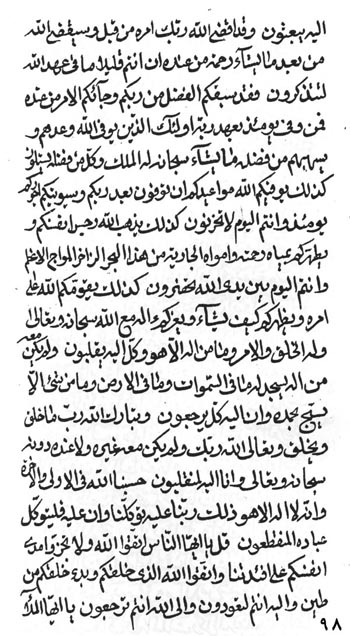 اليه يبعثون وقد قضى الله ربك امره من قبل وسيقضى الله
من بعد ما يشآء رحمة من عنده ان انتم قليلا ما فى عهد الله
لتذكرون فقد سبقكم الفضل من ربكم وجائكم الامر من عنده
فمن وفى يومئذ بعهد ربه اولئك الذين يوفى الله وعدهم و
من فضله ما يشآء سبحانه له الملك وكل من فضله
كذلك يوفيكم الله مواعيدكم ان توفون بعهد ربكم
يومئذ وانتم اليوم لا تحزنون كذلك يذهب الله رجس انفسكم و
يطهركم بمياه رحمته وامواه الجارية من هذا البحر الزاخر المواج الاعظم
وانتم اليوم بين يدى الله تحضرون كذلك يقومكم الله على
امره ويظهركم كيف يشآء اله مع الله سبحانه وتعالى
وله الخلق والامر وما من اله الا هو وكل اليه يقلبون ولم يكن معه
من اله يسجد له ما فى السموات وما فى الارض وما من شئ الا
يسبح بحمده وان اليه كل يرجعون وتبارك الله رب ما خلق
ويخلق وتعالى الله ربك ولم يكن معه غيره ولا عنده دونه
سبحانه وتعالى وانا اليه لمنقلبون حسبنا الله فى الاولى والاخرة
وانه لا اله الا هو ذلك ربنا عليه توكلنا وان عليه فليتوكل
عباده المنقطعون قل يا ايها الناس اتقوا الله ولا تحزنوا مدى
انفسكم على افئدتنا واتقوا الله الذى خلقكم وبدء خلقكم من
طين واليه انتم لتعودون والى الله انتم ترجعون يا ايها الملأ
٩٨